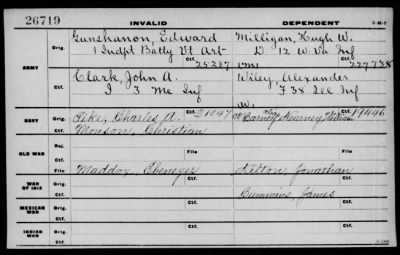 26719 INVALID DEPENDENT 3-48-3
Orig. Gunshanon, Edward Milligan, Hugh W.
1 Indpt Batty Vt Art D 12 W. Va Inf
ARMY Ctf. 24287 227738
Orig. Clark, John A. Wiley, Alexander
I 3 Me Inf F 38 Ill Inf
Ctf.
NAVY Orig. Pike, Charles A. Ctf. 21047 Carney Kearney Ctf. 19446
Monson, Christian
OLD WAR Rej.
Ctf. File File
WAR OF 1812 Orig. Maddox, Ebenezer Jonathan
Ctf. Cummins, James
MEXICAN WAR Orig.
Ctf.
INDIAN WAR Orig.
Ctf.